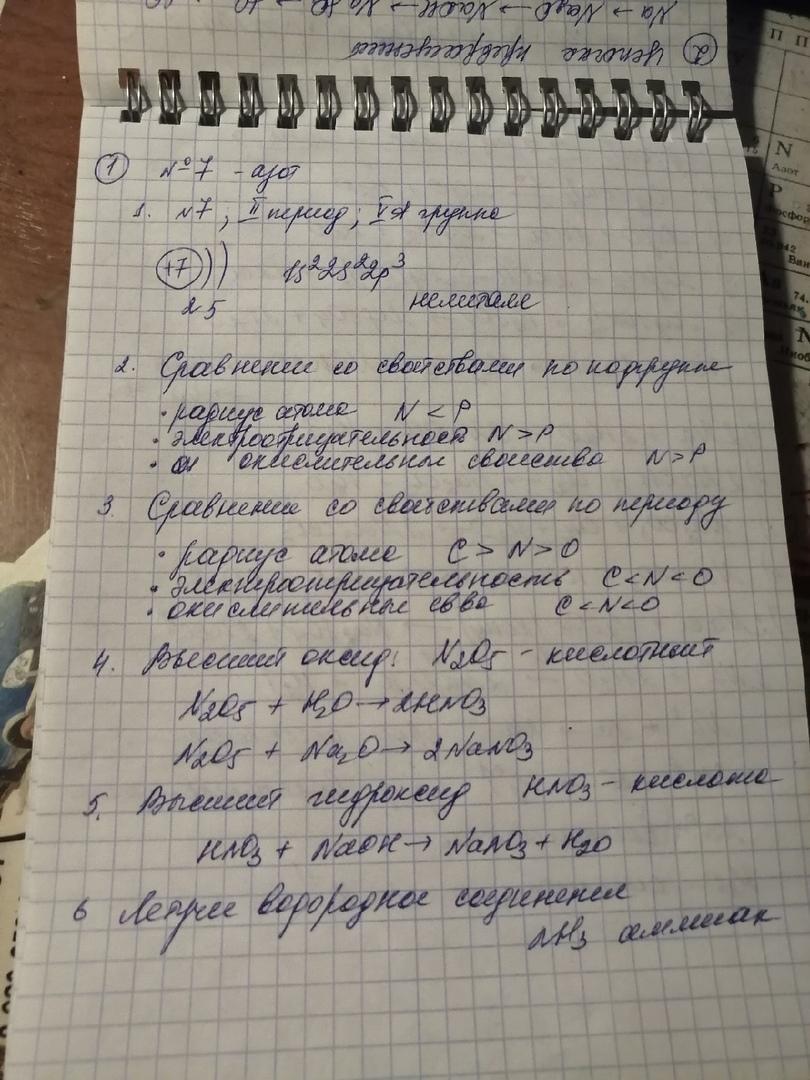 ② Цепочка превращений
Na → Na₂O → NaOH →
① №7 - азот
1. N7 ; II период ; VA группа
+7 ) ) 1s²2s²2p³
2 5 неметалл
2. Сравнение со свойствами по подгруппе
• радиус атома N < P
• электроотрицательность N > P
• окислительные свойства N > P
3. Сравнение со свойствами по периоду
• радиус атома C > N > O
• электроотрицательность C < N < O
• окислительные свва C < N < O
4. Высший оксид: N₂O₅ - кислотный
N₂O₅ + H₂O → 2HNO₃
N₂O₅ + Na₂O → 2NaNO₃
5. Высший гидроксид HNO₃ - кислота
HNO₃ + NaOH → NaNO₃ + H₂O
6 Летучее водородное соединение
NH₃ аммиак
П П
N
Азот
P